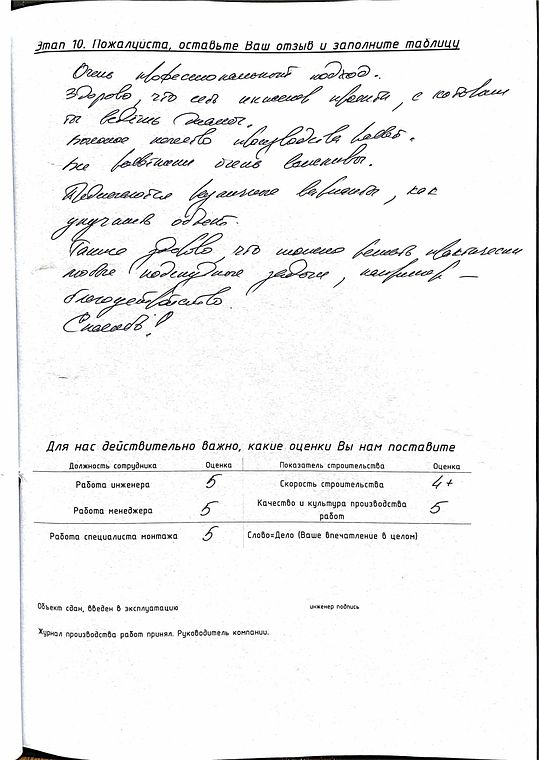 Этап 10. Пожалуйста, оставьте Ваш отзыв и заполните таблицу
Очень профессиональный подход.
Здорово, что есть инженер проекта, с которым
ты ведешь диалог.
Высокое качество производства работ.
Все работники очень вежливы.
Предлагаются различные варианты, как
улучшить объект.
Также здорово, что можно решать практически
любые подсудные задачи, например —
благоустройство
Спасибо!
Для нас действительно важно, какие оценки Вы нам поставите
Должность сотрудника Оценка Показатель строительства Оценка
Работа инженера 5 Скорость строительства 4+
Работа менеджера 5 Качество и культура производства работ 5
Работа специалиста монтажа 5 Слово=Дело (Ваше впечатление в целом)
Объект сдан, введен в эксплуатацию инженер подпись
Журнал производства работ принял. Руководитель компании.